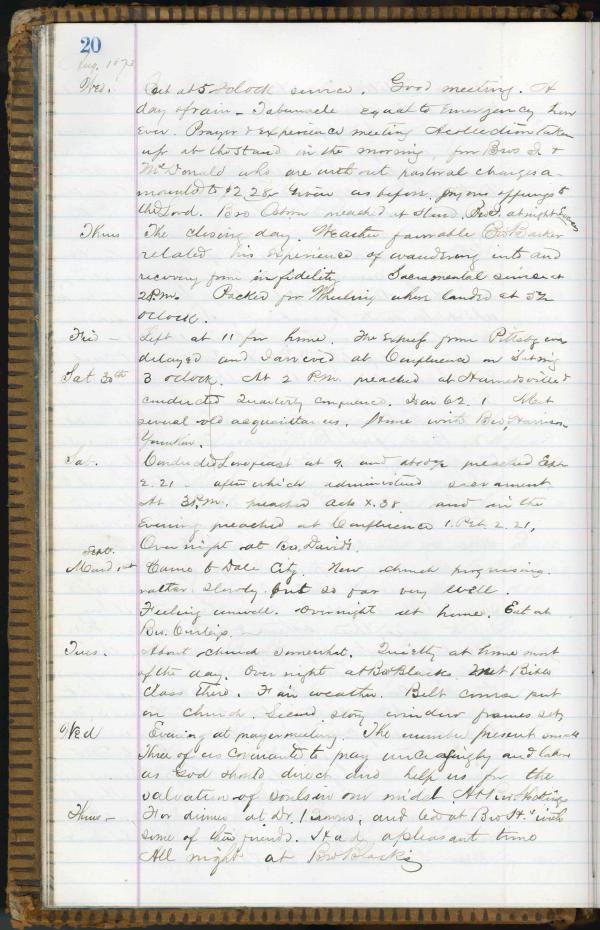 20
Aug. 1873
Wed. Out at 5 oclock service. Good meeting. A
day of rain - Tabernacle equal to Emergency how
ever. Prayer & experience meeting A collection taken
up at the Stand in the morning, for Bros J. &
McDonald who are without pastoral charges a-
mounted to $2 28 Given as before, joyous offerings to
the Lord. Bro Osborn preached at Stand, at night
Thurs The closing day. Weather favorable Bro Barker
related his experience of wandering into and
recovery from infidelity Sacramental service at
2 P.M. Packed for Wheeling where landed at 5½
oclock.
Fri - Left at 11 for home. The Express from Pittsbg
delayed and I arrived at Confluence on
Sat 30th 3 oclock. At 2 P.M. preached at Harnedsville &
conducted Quarterly conference, Isa 62. 1 Met
several old acquaintances. Home with Bro Harrison
Younkin.
Sat. Conducted Lovefeast at 9 and preached
2.21 - after which administered sacrament
At 3 P.M. preached Acts X.38 and in the
Evening preached at Confluence 1. Pet 2.21,
Over night at Bro. Davis.
Sept.
Mond 1st Came to Dale City. New church progressing
rather slowly but so far very well.
Feeling unwell. Over night at home. Eat at
Bro.
Tues. About church somewhat. Quietly at home most
of the day. Over night at Bro Blacks. Met Bible
class there. Fair weather. Belt course put
on church. Second story window frames set,
Wed Evening at prayermeeting. The number present small
Three of us covenanted to pray unceasingly and labor
as God should direct and help us for the
salvation of souls in our midst. At Bro.
Thur - For dinner at Dr. and tea at Bro H. with
some of their friends. Had a pleasant time
All night at Bro Blacks